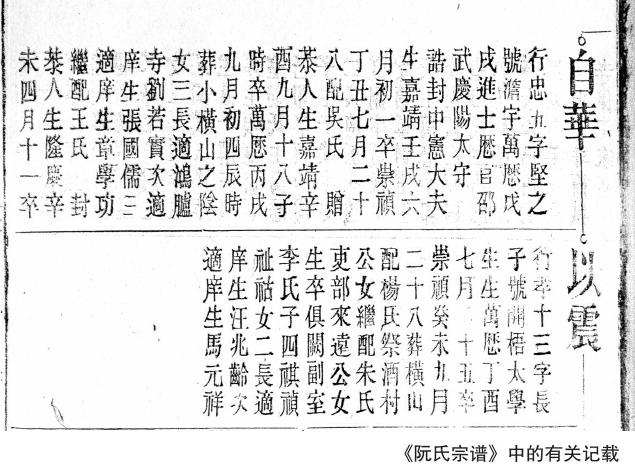 自華
行忠五字堅之
號澹宇萬厯戊
戌進士厯官邵
武慶陽太守
誥封中憲大夫
生嘉靖壬戌六
月初一卒崇禎
丁丑七月二十
八配吳氏 贈
恭人生嘉靖辛
酉九月十八子
時卒萬厯丙戌
九月初四辰時
葬小橫山之陰
女三長適鴻臚
寺劉若實次適
庠生張國儒三
適庠生章學功
繼配王氏 封
恭人生隆慶辛
未四月十一卒
以震
行孝十三字長
子號開梧太學
生生萬厯丁酉
七月二十五卒
崇禎癸未九月
二十八葬橫山
配楊氏祭酒村
公女繼配朱氏
吏部來遠公女
生卒俱闕副室
李氏子四祺禎
祉祜女二長適
庠生汪兆齡次
適庠生馬元祥
《阮氏宗谱》中的有关记载